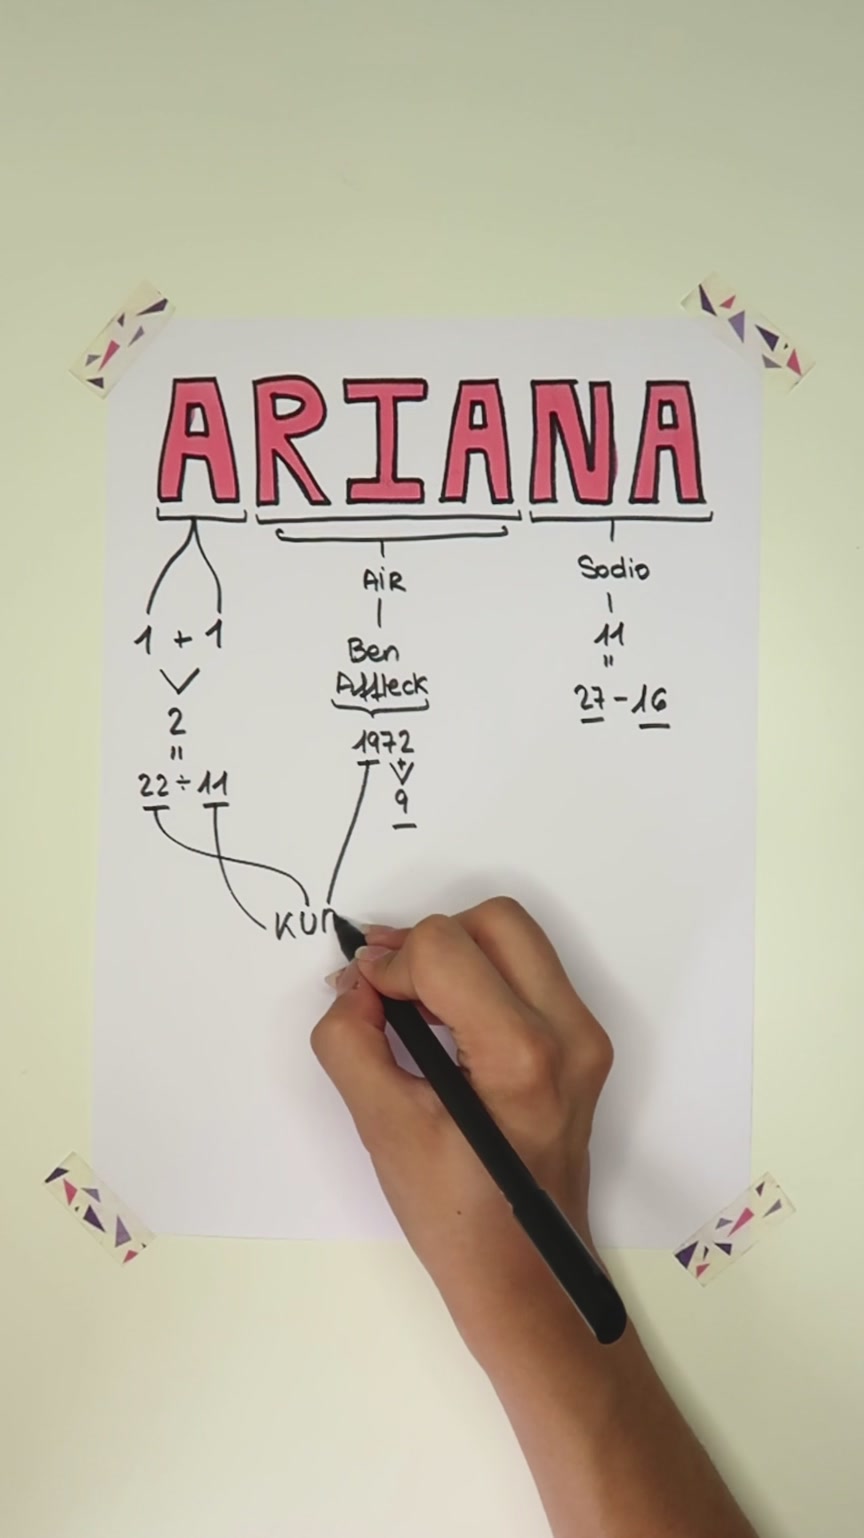 ARIANA
AiR
Sodio
1 + 1
11
Ben
"
Affleck
27-16
2
1972
"
+
22÷11
9
KUR